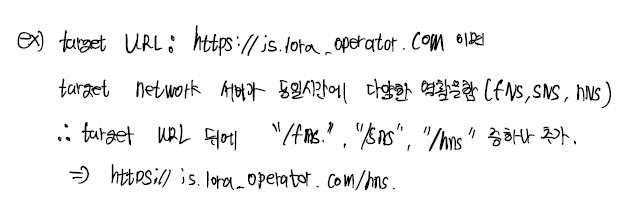 ex) target URL : https://js.lora_operator.com 이면
target network 서버가 동일시간에 다양한 역할을함 (fNS, SNS, hNS)
∴ target URL 뒤에 "/fns.", "/sns", "/hns" 중하나 추가.
⇒ https:// js.lora_operator.com/hns.